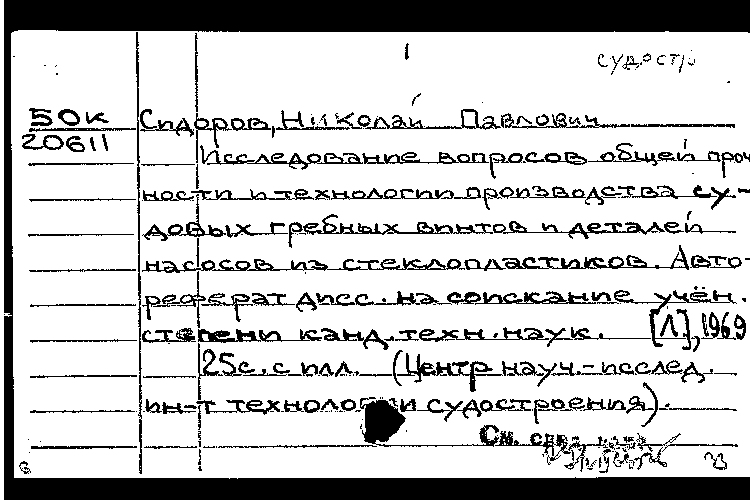 судостр
50к Сидоров, Николай Павлович
20611
Исследование вопросов общей проч
ности и технологии производства су-
довых гребных винтов и деталей
насосов из стеклопластиков. Авто-
реферат дисс. на соискание учён.
степени канд. техн. наук. [Л], 1969
25с. с илл. (Центр науч.-исслед.
ин-т технологии судостроения).
См.